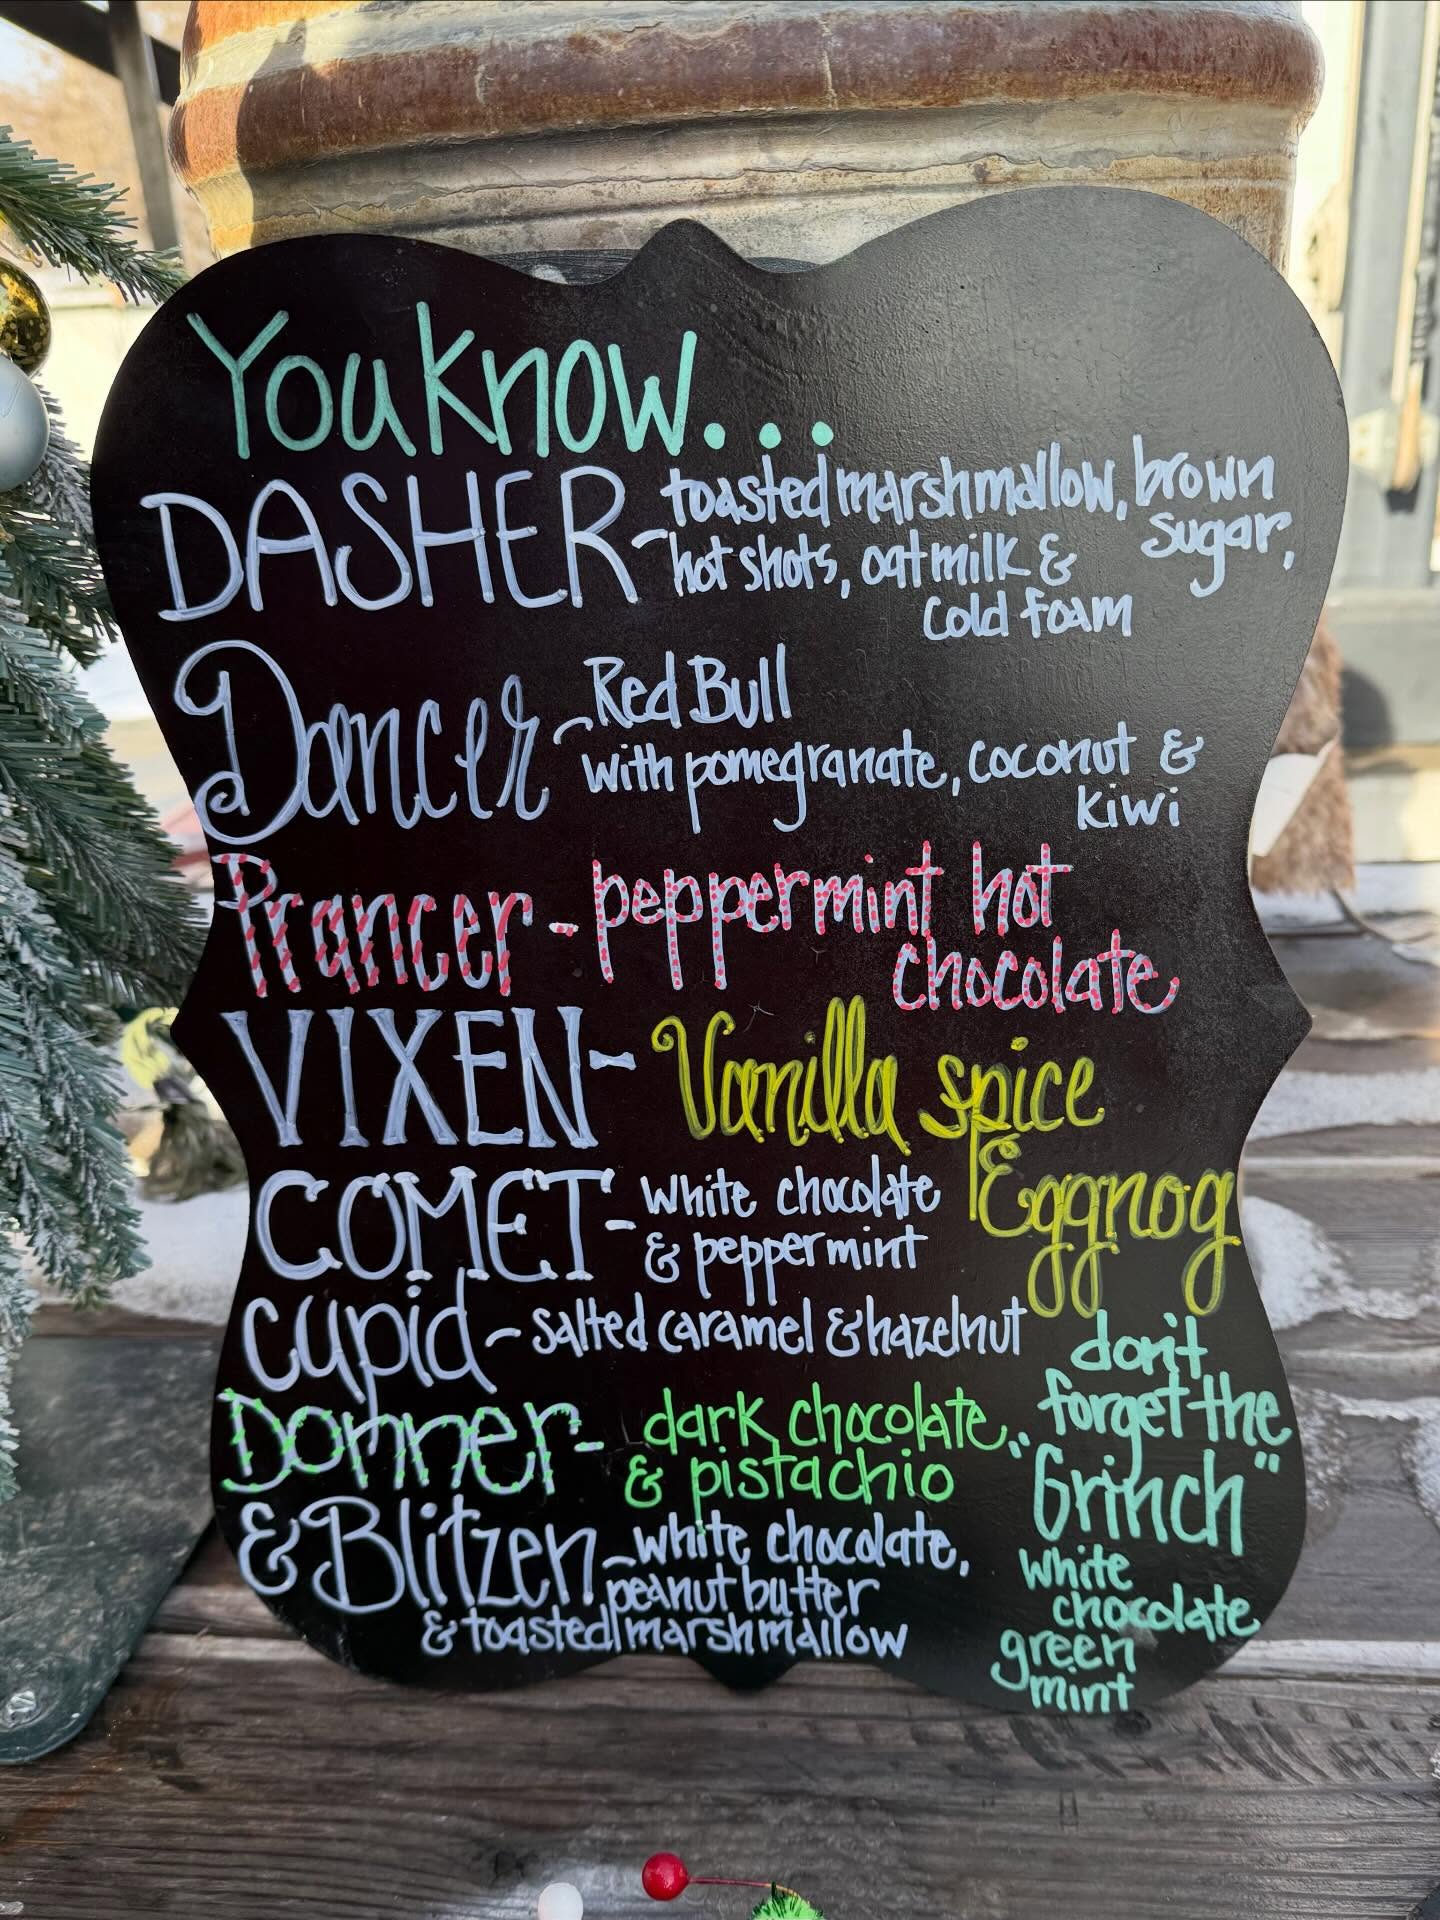 You know...
DASHER - toasted marshmallow, brown sugar,
hot shots, oatmilk &
cold foam
Dancer - Red Bull
with pomegranate, coconut &
kiwi
Prancer - peppermint hot
chocolate
VIXEN - Vanilla spice
Eggnog
COMET - white chocolate
& peppermint
Cupid - salted caramel & hazelnut
Donner - dark chocolate
& pistachio
& Blitzen - white chocolate,
peanut butter
& toasted marshmallow
don't
forget the
"Grinch"
white
chocolate
green
mint